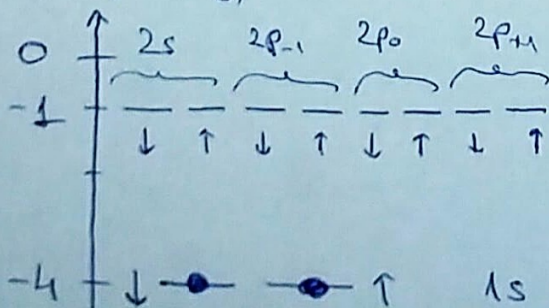 0 2s 2p₋₁ 2p₀ 2p₊₁
-1
↓ ↑ ↓ ↑ ↓ ↑ ↓ ↑
-4 ↓ ↑ 1s